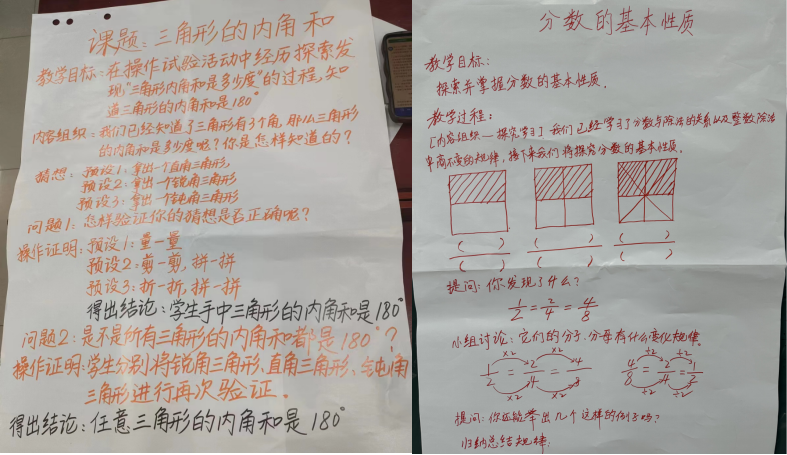 课题：三角形的内角和
教学目标：在操作试验活动中经历探索发
现，"三角形内角和是多少度"的过程，知
道三角形的内角和是180°
内容组织：我们已经知道了三角形有3个角，那么三角形
的内角和是多少度呢？你是怎样知道的？
猜想：预设1：拿出一个直角三角形，
预设2：拿出一个锐角三角形
预设3：拿出一个钝角三角形
问题1：怎样验证你的猜想是否正确呢？
操作证明：预设1：量一量
预设2：剪一剪，拼一拼
预设3：折一折，拼一拼
得出结论：学生手中三角形的内角和是180°
问题2：是不是所有三角形的内角和都是180°？
操作证明：学生分别将锐角三角形、直角三角形、钝角
三角形进行再次验证。
得出结论：任意三角形的内角和是180°
分数的基本性质
教学目标：
探索并掌握分数的基本性质。
教学过程：
[内容组织一探究学习] 我们已经学习了分数与除法的关系以及整数除法
中商不变的规律，接下来我们将探究分数的基本性质。
( ) ( ) ( )
( ) ( ) ( )
提问：你发现了什么？
1/2 = 2/4 = 4/8
小组讨论：它们的分子、分母有什么变化规律。
×2 ×2 ÷2 ÷2
1/2 = 2/4 = 4/8 4/8 = 2/4 = 1/2
×2 ×2 ÷2 ÷2
提问：你还能举出几个这样的例子吗？
归纳总结规律：